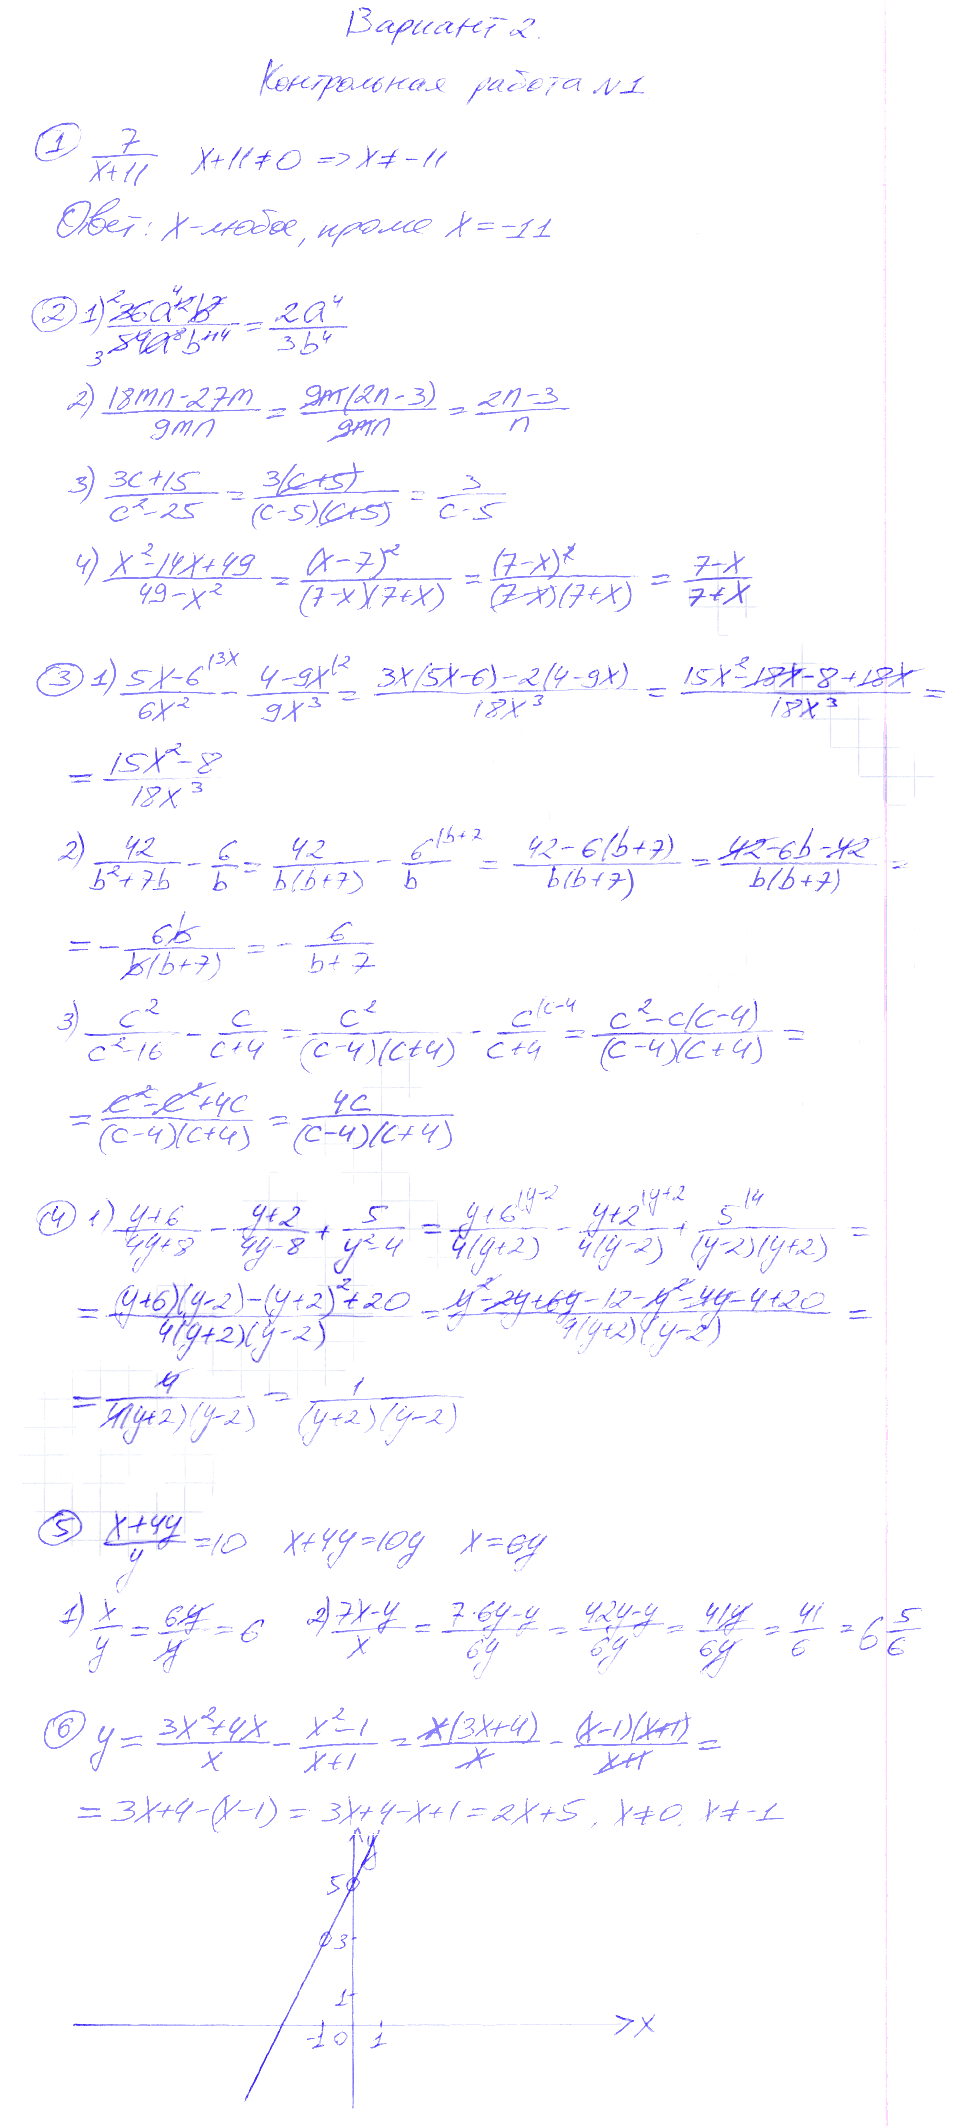 Вариант 2.
Контрольная работа №1
① 7/(x+11) x+11≠0 => x≠-11
Ответ: x-любое, кроме x=-11
② 1) ²36a⁴¹²b⁷/₃54a⁸b¹¹⁴ = 2a⁴/3b⁴
2) (18mn-27m)/9mn = 9m(2n-3)/9mn = (2n-3)/n
3) (3c+15)/(c²-25) = 3(c+5)/(c-5)(c+5) = 3/(c-5)
4) (x²-14x+49)/(49-x²) = (x-7)²/(7-x)(7+x) = (7-x)²/(7-x)(7+x) = (7-x)/(7+x)
③ 1) (5x-6)/6x² |3x - (4-9x)/9x³ |2 = (3x(5x-6)-2(4-9x))/18x³ = (15x²-18x-8+18x)/18x³ =
= (15x²-8)/18x³
2) 42/(b²+7b) - 6/b = 42/b(b+7) - 6/b |b+7 = (42-6(b+7))/b(b+7) = (42-6b-42)/b(b+7) =
= - 6b/b(b+7) = - 6/(b+7)
3) c²/(c²-16) - c/(c+4) = c²/(c-4)(c+4) - c/(c+4) |c-4 = (c²-c(c-4))/(c-4)(c+4) =
= (c²-c²+4c)/(c-4)(c+4) = 4c/(c-4)(c+4)
④ 1) (y+6)/(4y+8) - (y+2)/(4y-8) + 5/(y²-4) = (y+6)/4(y+2) |y-2 - (y+2)/4(y-2) |y+2 + 5/(y-2)(y+2) |4 =
= ((y+6)(y-2)-(y+2)²+20)/4(y+2)(y-2) = (y²-2y+6y-12-y²-4y-4+20)/4(y+2)(y-2) =
= 4/4(y+2)(y-2) = 1/(y+2)(y-2)
⑤ (x+4y)/y = 10 x+4y=10y x=6y
1) x/y = 6y/y = 6 2) (7x-y)/x = (7·6y-y)/6y = (42y-y)/6y = 41y/6y = 41/6 = 6 5/6
⑥ y = (3x²+4x)/x - (x²-1)/(x+1) = x(3x+4)/x - (x-1)(x+1)/(x+1) =
= 3x+4-(x-1) = 3x+4-x+1 = 2x+5, x≠0, x≠-1
y
5
3
1
-1 0 1 x